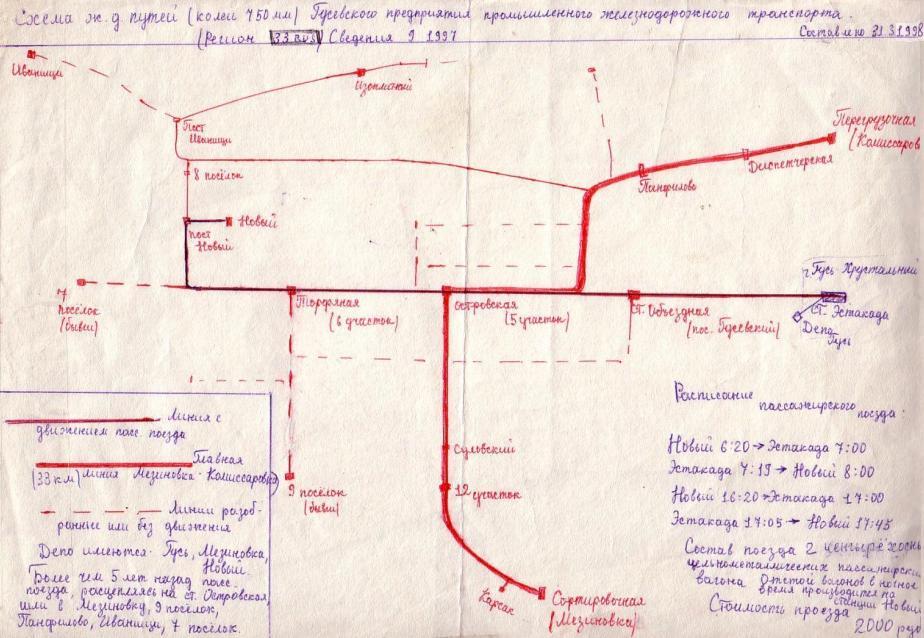 Схема ж.д. путей (колеи 750 мм) Гусевского предприятия промышленного железнодорожного транспорта.
(Регион 33 RUS) Сведения 9 1997
Составлено 31 3 1998
Иваницы
Изоплитный
Пост
Иваницы
Перегрузочная
(Комиссаров
Диспетчерская
Панфилово
8 посёлок
Новый
пост
Новый
7
посёлок
(бывш)
Торфяная
(6 участок)
Островская
(5 участок)
ст. Объездная
(пос. Гусевский)
г. Гусь Хрустальный
ст. Эстакада
Депо
Гусь
Линия с
движением пасс. поезда
Главная
(33 км) линия Мезиновка-Комиссаровка
Линии разоб-
ранные или без движения
Депо имеются - Гусь, Мезиновка,
Новый.
Более чем 5 лет назад пасс.
поезда, расцепляясь на ст. Островская
шли в Мезиновку, 9 посёлок,
Панфилово, Иваницы, 7 посёлок.
9 посёлок
(бывш)
Сульвский
12 участок
Карсак
Сортировочная
(Мезиновка)
Расписание
пассажирского
поезда:
Новый 6:20 → Эстакада 7:00
Эстакада 7:19 → Новый 8:00
Новый 16:20 → Эстакада 17:00
Эстакада 17:05 → Новый 17:45
Состав поезда 2 четырёхосн
цельнометаллических пассажирских
вагона Отстой вагонов в ночное
время производится на
станции Новый
Стоимость проезда
2000 руб